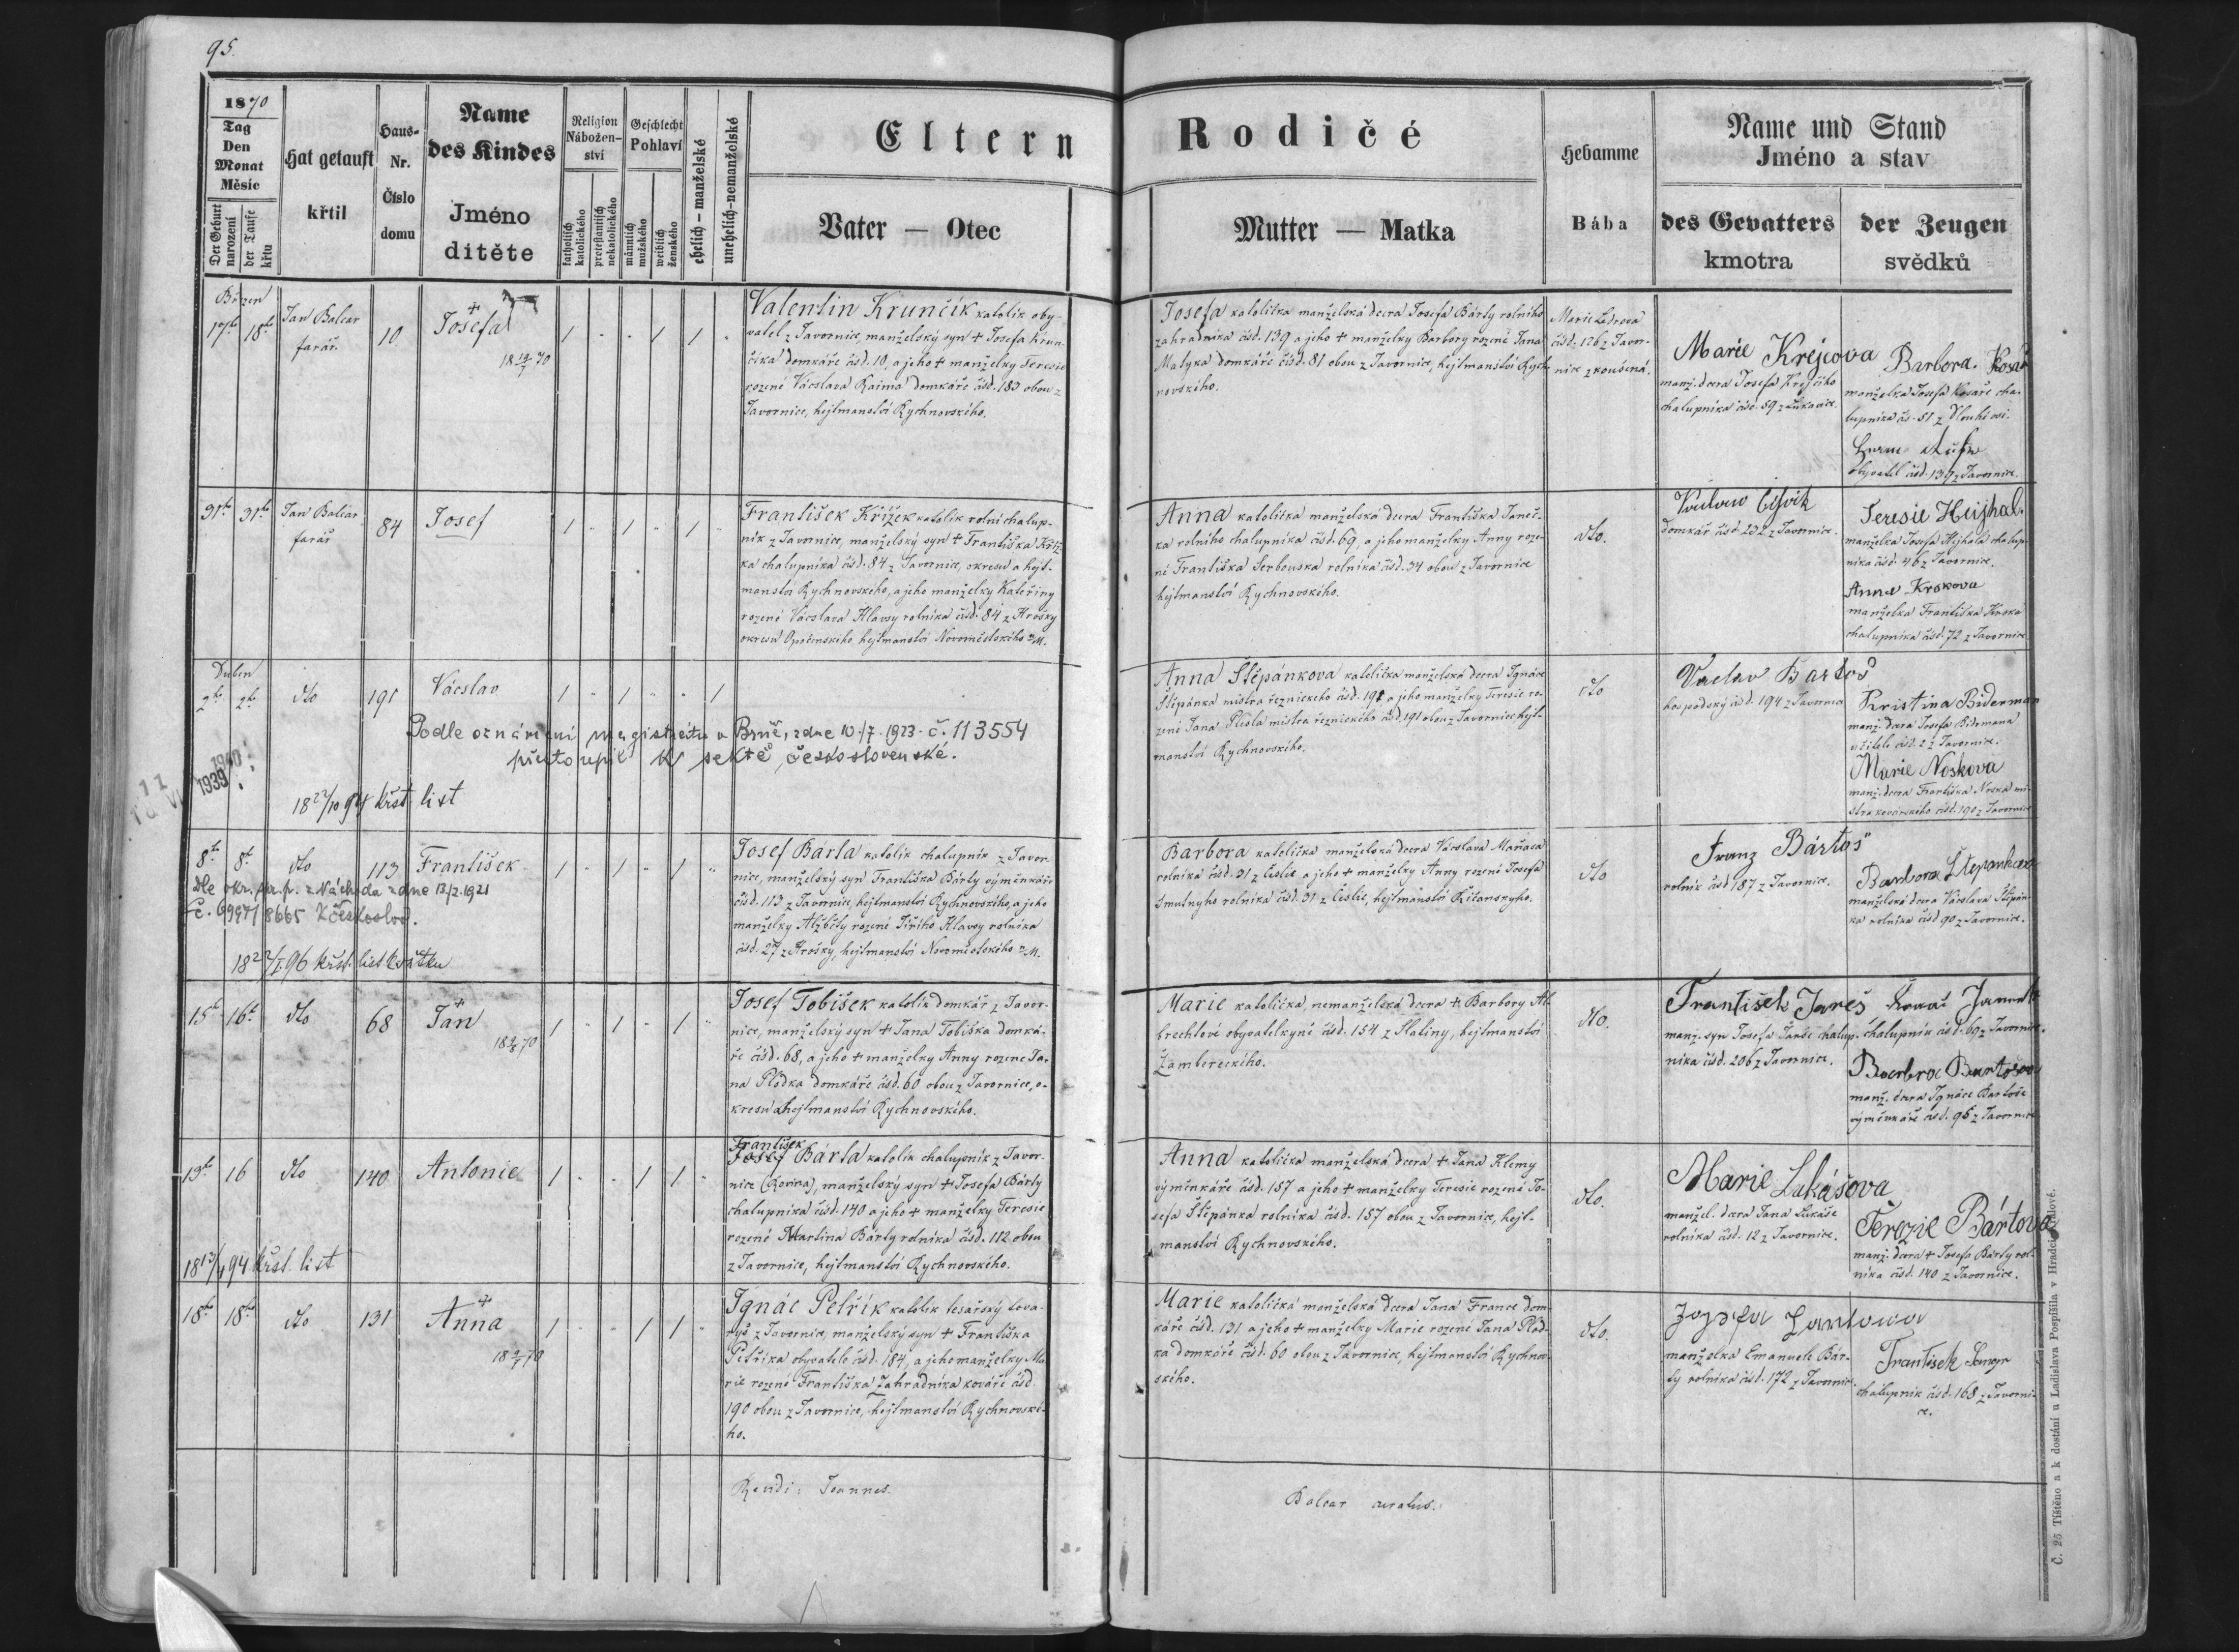 95.
1870
Tag
Den
Monat
Měsíc
Der Geburt
narození
der Taufe
křtu
Hat getauft
křtil
Haus-
Nr.
Číslo
domu
Name
des Kindes
Jméno
ditěte
Religion
Nábožen-
ství
katholisch
katolického
protestantisch
nekatolického
Geschlecht
Pohlaví
männlich
mužského
weiblich
ženského
ehelich – manželské
unehelich-nemanželské
Eltern
Vater — Otec
Rodičé
Mutter — Matka
Hebamme
Bába
Name und Stand
Jméno a stav
des Gevatters
kmotra
der Zeugen
svědků
Březen
17. 18.
Jan Balcar
farář.
10
+
Josefa
18 70
Valentin Krunčík katolík oby-
vatel z Javornice, manželský syn + Josefa Krun-
číka domkáře čísd. 10, a jeho + manželky Teresie
rozené Vácslava Kaima domkáře čísd. 183 obou z
Javornice, hejtmanství Rychnovského.
Josefa katolička manželská dcera Josefa Bárty rolního
zahradníka čísd. 139 a jeho + manželky Barbory rozené Jana
Matyka domkáře čísd. 81 obou z Javornice, hejtmanství Rych-
novského.
Marie
čísd. 126 z Javor-
nice zkoušená.
Marie Krejcova
manž. dcera Josefa Krejčího
chalupníka čísd. 59 z Lukavice.
Barbora
manželka Josefa Kosaře cha-
lupníka čís. 51 z
obyvatel čísd. 139 z Javornice.
31. 31.
Jan Balcar
farář
84
Josef
František Křížek katolík rolní chalup-
ník z Javornice, manželský syn + Františka Kříž-
ka chalupníka čísd. 84 z Javornice, okresu a hejt-
manství Rychnovského, a jeho manželky Kateřiny
rozené Vácslava Hlavsy rolníka čísd. 84 z Hrošky
okresu Opočenského hejtmanství Novoměstského n/M.
Anna katolička manželská dcera Františka Janeč-
ka rolního chalupníka čísd. 69, a jeho manželky Anny roze-
né Františka Serbouska rolníka čísd. 34 obou z Javornice
hejtmanství Rychnovského.
dto.
domkář čísd. 232 z Javornice.
Teresie Hejhal.
manželka Josefa Hejhala chalup-
níka čísd. 46 z Javornice.
Anna Krskova
manželka Františka
chalupníka čísd. 72 z Javornice
Duben
2. 2.
dto
191
Vácslav
Podle oznámení magistrátu v Brně, z dne 10./7. 1923. č. 113554
přistoupil k sektě československé.
1940
1939
18 22/10 94 křst. list
Anna Štěpánkova katolička manželská dcera Ignáce
Štěpánka mistra řeznického čísd. 191 a jeho manželky Teresie ro-
zené Jana mistra řeznického čísd. 191 obou z Javornice hejt-
manství Rychnovského.
dto
Vaclav Bartoš
hospodský čísd. 194 z Javornice
Kristina Biderman
manž. dcera Josefa Bidrmana
učitele čísd. 2 z Javornice.
Marie Noskova
manž. dcera Františka Noska mi-
stra kovářského čísd. 190 z Javornice
8. 8.
dto
113
František
Dle okr. z Náchoda z dne 13./2. 1921
č. 69971/8665 k českoslov.
18 96 křst. list
Josef Bárta katolík chalupník z Javor-
nice, manželský syn Františka Bárty výměnkáře
čísd. 113 z Javornice, hejtmanství Rychnovského, a jeho
manželky Alžběty rozené Jiřího Hlavsy rolníka
čísd. 27 z Hrošky, hejtmanství Novoměstského n/M.
Barbora katolička manželská dcera Vácslava Mařaca
rolníka čísd. 31 z Čestlic a jeho + manželky Anny rozené Josefa
Smutnýho rolníka čísd. 31 z Čestlic, hejtmanství Říčanského.
dto
Franz Bártoš
rolník čísd 187 z Javornice.
Barbora Štepankova
manželská dcera Vácslava Štěpán-
ka rolníka čísd 90 z Javornice.
15. 16.
dto
68
+
Jan
18 70
Josef Tobišek katolík domkář z Javor-
nice, manželský syn + Jana Tobiška domká-
ře čísd. 68, a jeho + manželky Anny rozené Ja-
na Plodka domkáře čísd. 60 obou z Javornice, o-
kresu a hejtmanství Rychnovského.
Marie katolička, nemanželská dcera + Barbory Al-
brechtové obyvatelkyně čísd. 154 z Slatiny, hejtmanství
Žambereckého.
dto.
František Jareš
manž. syn Josefa Jareše chalup-
níka čísd. 206 z Javornice.
chalupník čísd. 69 z Javornice.
Barbora Bartošova
manž. dcera Ignáce Bartoše
výměnkáře čísd. 95 z Javornice
13. 16
dto
140
Antonie
18 94 křst. list
František
Josef Bárta katolík chalupník z Javor-
nice (Rovina), manželský syn + Josefa Bárty
chalupníka čísd. 140 a jeho + manželky Teresie
rozené Martina Bárty rolníka čísd. 112 obou
z Javornice, hejtmanství Rychnovského.
Anna katolička manželská dcera + Jana Klemy
výměnkáře čísd. 157 a jeho + manželky Teresie rozené Jo-
sefa Štěpánka rolníka čísd. 157 obou z Javornice, hejt-
manství Rychnovského.
dto.
Marie Lukášova
manžel. dcera Jana Lukáše
rolníka čísd. 12 z Javornice.
Terezie Bártova
manž. dcera + Josefa Bárty rol-
níka čísd. 140 z Javornice.
18. 18.
dto
131
+
Anna
18 70
Ignác Petřík katolík tesařský tova-
ryš z Javornice, manželský syn + Františka
Petříka obyvatele čísd. 184, a jeho manželky Ma-
rie rozené Františka Zahradníka kováře čísd.
190 obou z Javornice, hejtmanství Rychnovské-
ho.
Marie katolička manželská dcera Jana France dom-
káře čísd. 131 a jeho + manželky Marie rozené Jana Plod-
ka domkáře čísd. 60 obou z Javornice, hejtmanství Rychnov-
ského.
dto.
manželka Emanuele Bár-
ty rolníka čísd. 172 z Javornice.
František
chalupník čísd. 168 z Javorni-
ce.
Joannes
Balcar
Č. 25 Tištěno a k dostání u Ladislava Pospíšila v Hradci Králové.